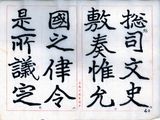 総司文史
敷奏惟允
國之律令
是所議定